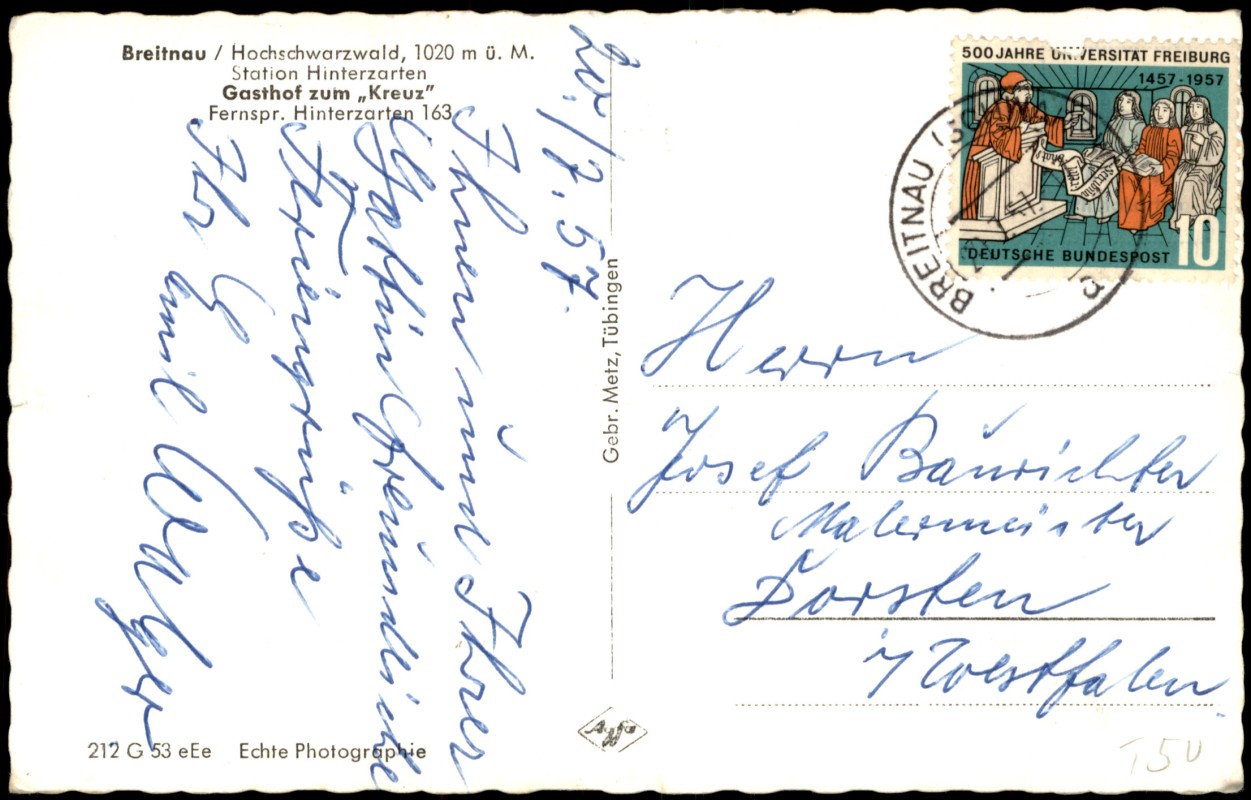 Breitnau / Hochschwarzwald, 1020 m ü. M.
Station Hinterzarten
Gasthof zum „Kreuz”
Fernspr. Hinterzarten 163
20./7.57.
Ihnen und Ihrer
Gattin freundliche
Feriengrüße
Ihr
Emil
212 G 53 eEe Echte Photographie
Gebr. Metz, Tübingen
Agfa
500 JAHRE UNIVERSITÄT FREIBURG
1457-1957
DEUTSCHE BUNDESPOST 10
BREITNAU
Herrn
Josef Baurichter
Malermeister
Dorsten
i/Westfalen
T5U